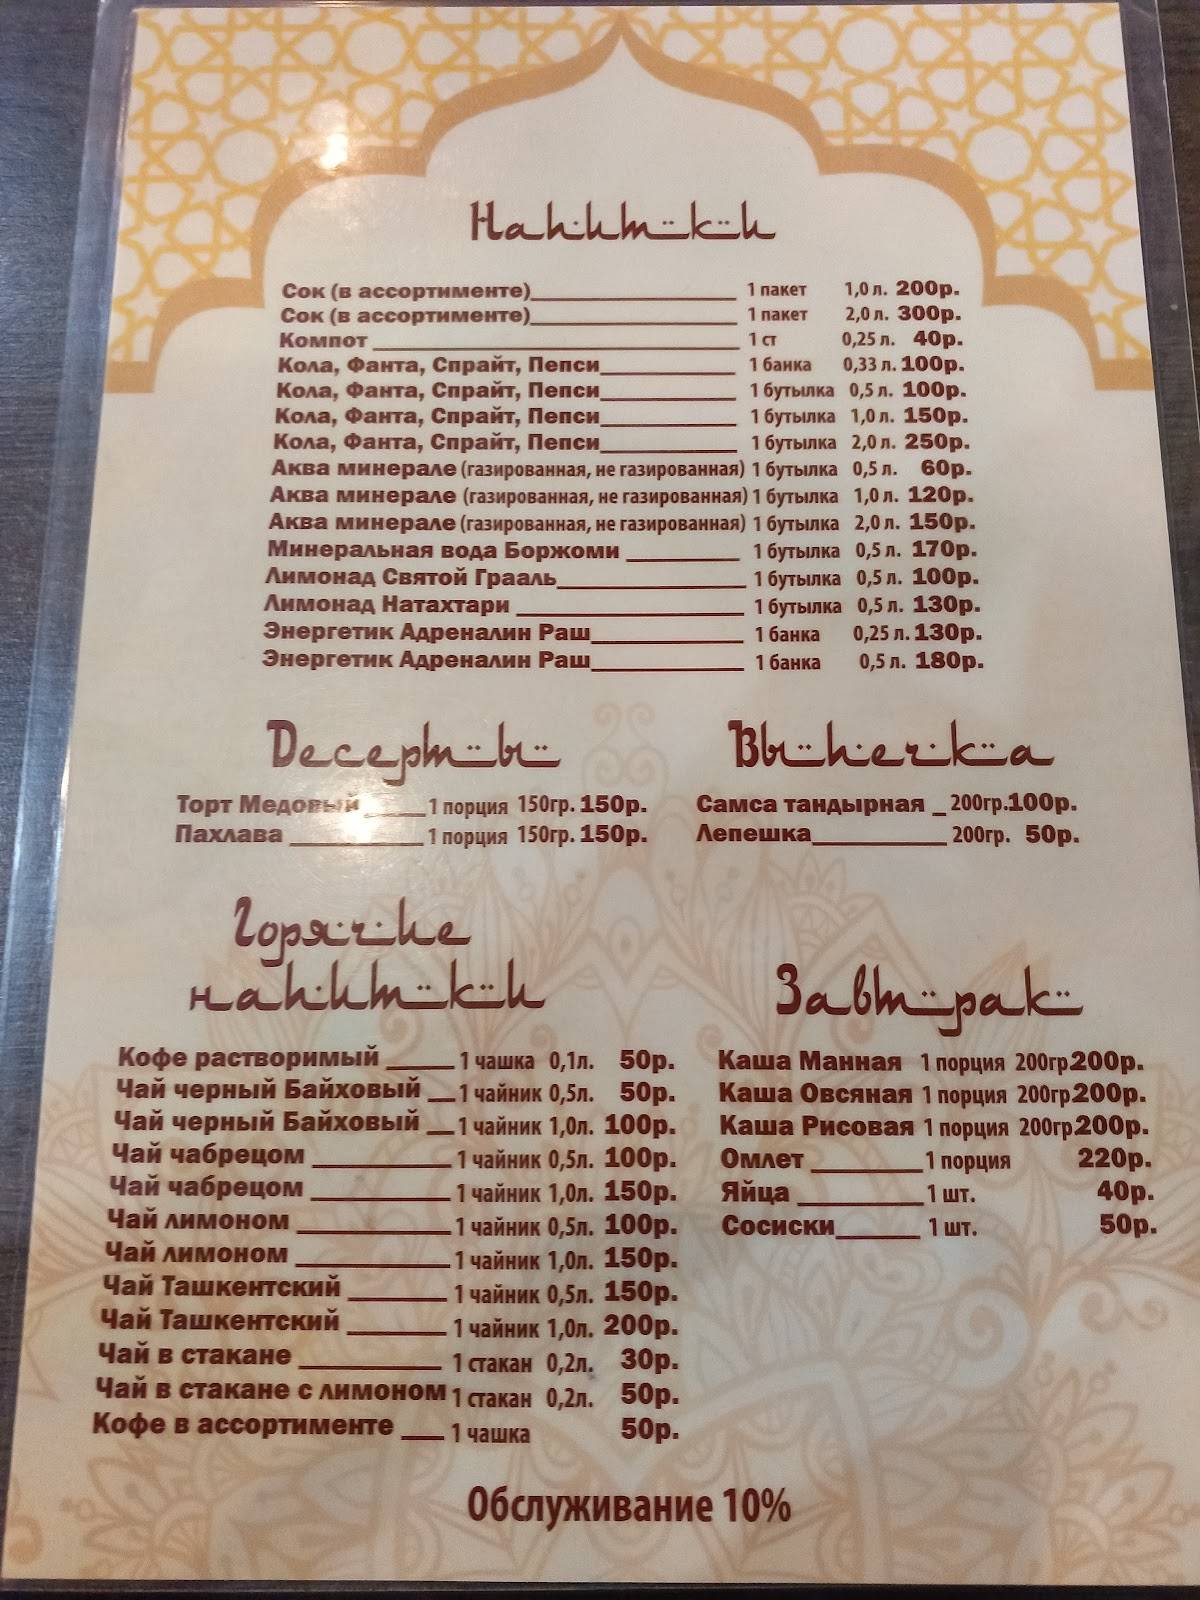 Напитки
Сок (в ассортименте) 1 пакет 1,0 л. 200р.
Сок (в ассортименте) 1 пакет 2,0 л. 300р.
Компот 1 ст 0,25 л. 40р.
Кола, Фанта, Спрайт, Пепси 1 банка 0,33 л. 100р.
Кола, Фанта, Спрайт, Пепси 1 бутылка 0,5 л. 100р.
Кола, Фанта, Спрайт, Пепси 1 бутылка 1,0 л. 150р.
Кола, Фанта, Спрайт, Пепси 1 бутылка 2,0 л. 250р.
Аква минерале (газированная, не газированная) 1 бутылка 0,5 л. 60р.
Аква минерале (газированная, не газированная) 1 бутылка 1,0 л. 120р.
Аква минерале (газированная, не газированная) 1 бутылка 2,0 л. 150р.
Минеральная вода Боржоми 1 бутылка 0,5 л. 170р.
Лимонад Святой Грааль 1 бутылка 0,5 л. 100р.
Лимонад Натахтари 1 бутылка 0,5 л. 130р.
Энергетик Адреналин Раш 1 банка 0,25 л. 130р.
Энергетик Адреналин Раш 1 банка 0,5 л. 180р.
Десерты
Торт Медовый 1 порция 150гр. 150р.
Пахлава 1 порция 150гр. 150р.
Выпечка
Самса тандырная 200гр. 100р.
Лепешка 200гр. 50р.
Горячие
напитки
Кофе растворимый 1 чашка 0,1л. 50р.
Чай черный Байховый 1 чайник 0,5л. 50р.
Чай черный Байховый 1 чайник 1,0л. 100р.
Чай чабрецом 1 чайник 0,5л. 100р.
Чай чабрецом 1 чайник 1,0л. 150р.
Чай лимоном 1 чайник 0,5л. 100р.
Чай лимоном 1 чайник 1,0л. 150р.
Чай Ташкентский 1 чайник 0,5л. 150р.
Чай Ташкентский 1 чайник 1,0л. 200р.
Чай в стакане 1 стакан 0,2л. 30р.
Чай в стакане с лимоном 1 стакан 0,2л. 50р.
Кофе в ассортименте 1 чашка 50р.
Завтрак
Каша Манная 1 порция 200гр 200р.
Каша Овсяная 1 порция 200гр 200р.
Каша Рисовая 1 порция 200гр 200р.
Омлет 1 порция 220р.
Яйца 1 шт. 40р.
Сосиски 1 шт. 50р.
Обслуживание 10%